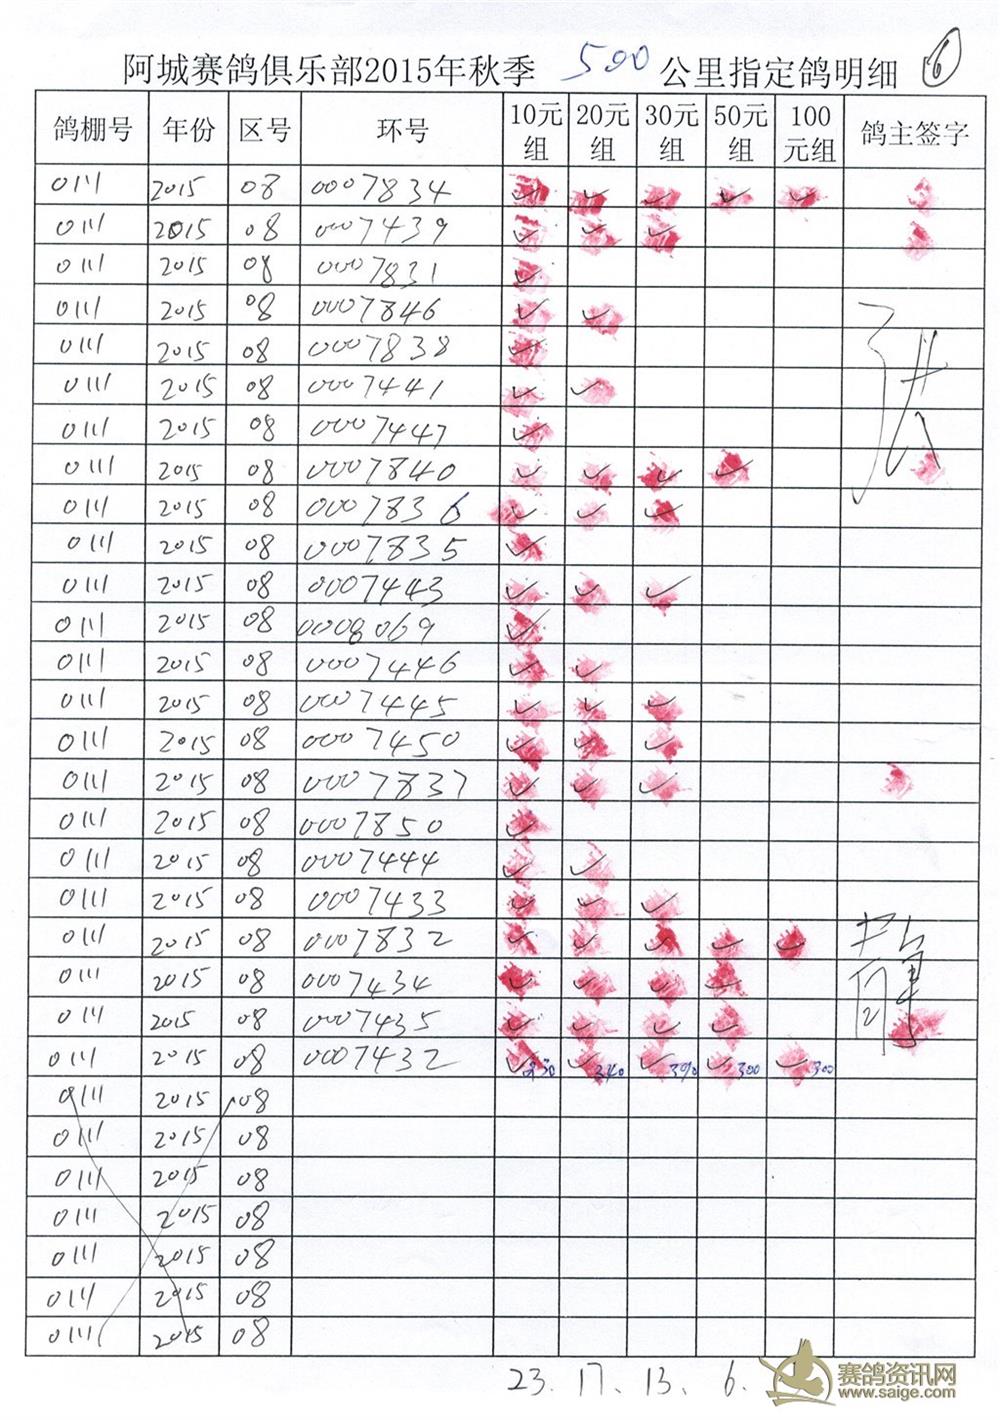 阿城赛鸽俱乐部2015年秋季 500 公里指定鸽明细 ⑥
鸽棚号 年份 区号 环号 10元组 20元组 30元组 50元组 100元组 鸽主签字
0111 2015 08 0007834 ✓ ✓ ✓ ✓ ✓
0111 2015 08 0007439 ✓ ✓ ✓
0111 2015 08 0007831 ✓
0111 2015 08 0007846 ✓ ✓
0111 2015 08 0007838 ✓
0111 2015 08 0007441 ✓ ✓
0111 2015 08 0007447 ✓
0111 2015 08 0007840 ✓ ✓ ✓ ✓
0111 2015 08 0007836 ✓ ✓ ✓
0111 2015 08 0007835 ✓
0111 2015 08 0007443 ✓ ✓ ✓
0111 2015 08 0008069 ✓
0111 2015 08 0007446 ✓ ✓
0111 2015 08 0007445 ✓ ✓ ✓
0111 2015 08 0007450 ✓ ✓ ✓
0111 2015 08 0007837 ✓ ✓ ✓
0111 2015 08 0007850 ✓
0111 2015 08 0007444 ✓ ✓
0111 2015 08 0007433 ✓ ✓ ✓
0111 2015 08 0007832 ✓ ✓ ✓ ✓ ✓
0111 2015 08 0007434 ✓ ✓ ✓ ✓
0111 2015 08 0007435 ✓ ✓ ✓ ✓
0111 2015 08 0007432 ✓230 ✓340 ✓390 ✓300 ✓300
0111 2015 08
0111 2015 08
0111 2015 08
0111 2015 08
0111 2015 08
0111 2015 08
0111 2015 08
23. 17. 13. 6.
赛鸽资讯网
www.saige.com